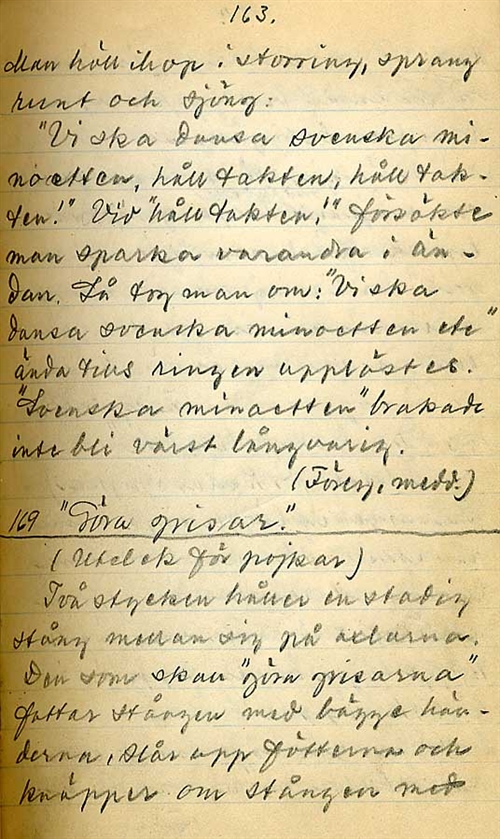 163.
Man höll ihop i storring, sprang
runt och sjöng:
"Vi ska dansa svenska mi-
noetten, håll takten, håll tak-
ten!" Vid "håll takten!" försökte
man sparka varandra i än-
dan. Så tog man om: "Vi ska
dansa svenska minoetten etc"
ända tills ringen upplöstes.
"Svenska minoetten" brukade
inte bli värst långvarig.
(Föreg. medd.)
169 "Göra grisar."
(Utelek för pojkar)
Två stycken håller en stadig
stång mellan sig på axlarna.
Den som skall "göra grisarna"
fattar stången med bägge hän-
derna, slår upp fötterna och
knäpper om stången med